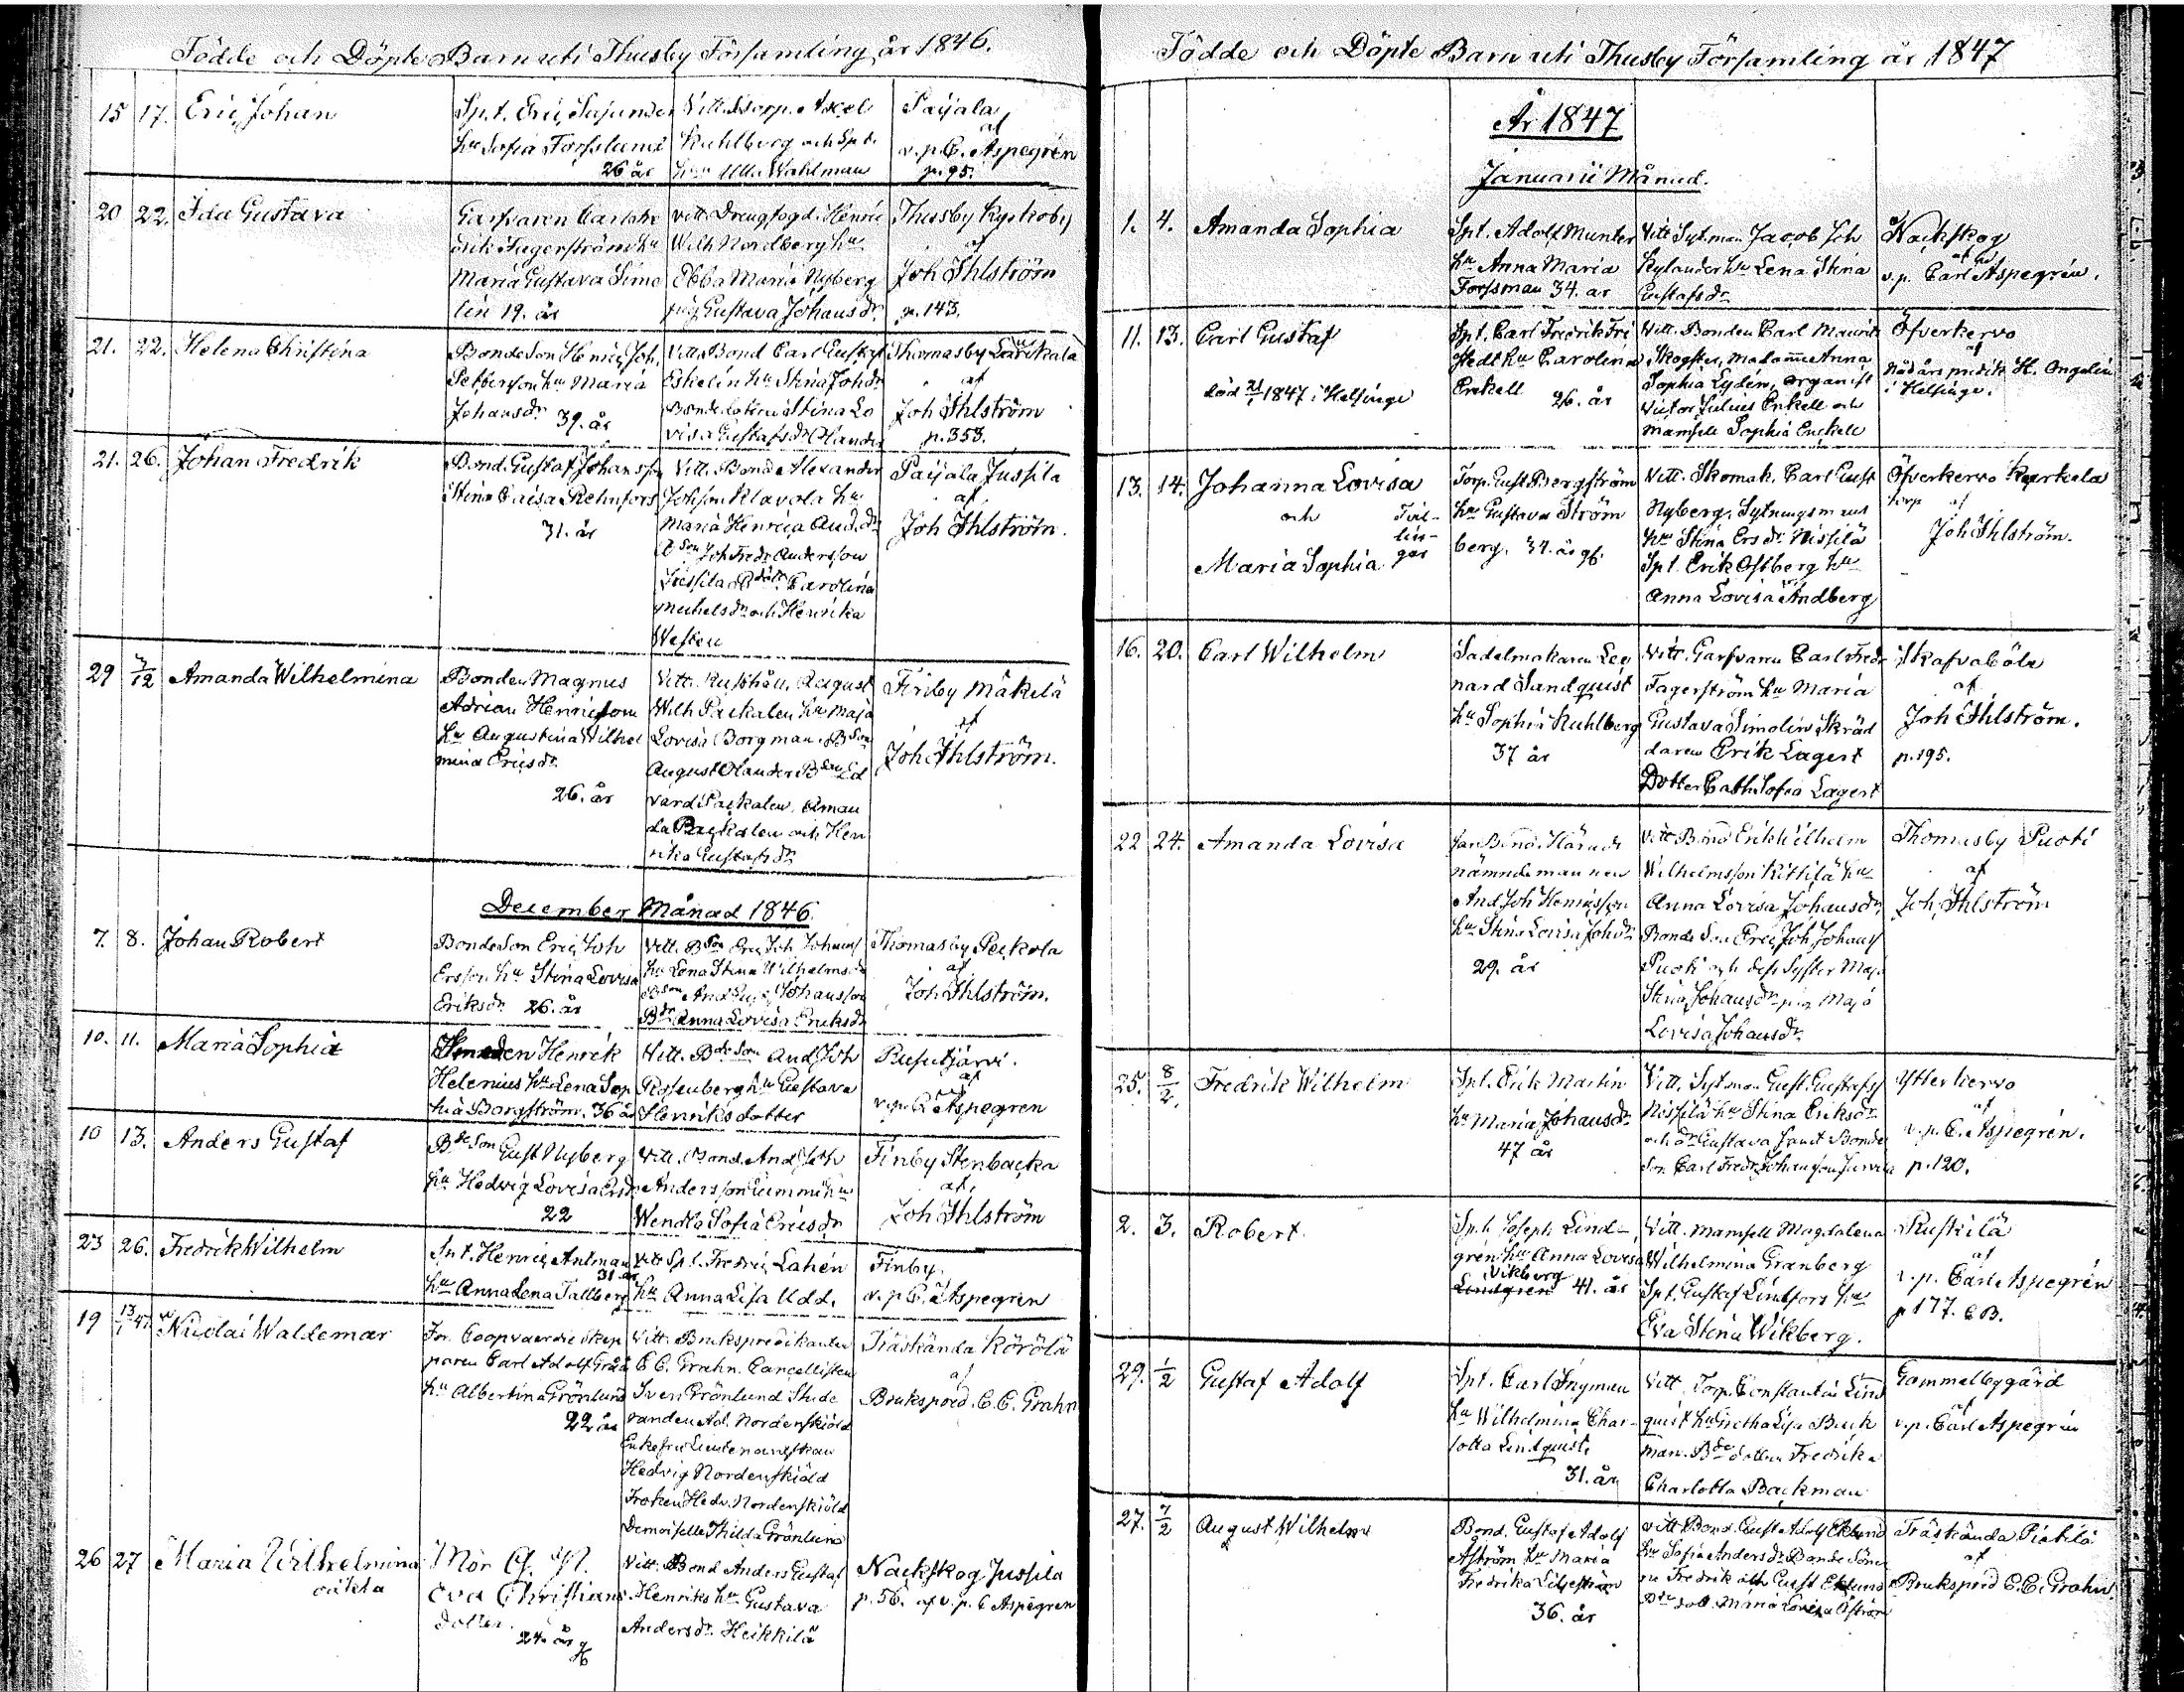 Födde och Döpte Barn uti Thusby Församling år 1846.
15 17. Eric Johan
Spt. Eric
hu Sofia Forslund
26 år
Vitt. Torp. Axel
Kuhlberg och Spt.
hu Ulla Wahlman
Paijala
af
v.p. C. Aspegrén
p. 95.
20 22. Ida Gustava
Garfvaren Carl
Erik Fagerström hu
Maria Gustava Simo
lin 19. år
Vitt. Drengfogd. Henric
Wilh Nordberg hu
Ebba Maria Nyberg
pig. Gustava Johansdr
Thusby Kyrkoby
af
Joh Ihlström
p. 143.
21. 22. Helena Christina
Bonde Son Henric Joh.
hu Maria
Johansdr 39. år
Vitt. Bond Carl Gustaf
Eskelin hu Stina Johdr
Bondedottern Stina Lo
visa Gustafsdr Olander
Thomasby
af
Joh Ihlström
p. 353.
21. 26. Johan Fredrik
Bond. Gustaf Johansson
Stina Caisa Rehnfors
31. år
Vitt. Bond Alexander
Johsson Klavola hu
Maria Henrica And.dr
Bson Joh Fredr Andersson
Jussila Carolina
Michelsdr och Henrika
Westen
Paijala Jussila
af
Joh Ihlström.
29 3/12 Amanda Wilhelmina
Bonden Magnus
Adrian Henricsson
hu Augustina Wilhel
mina Ericsdr
26. år
Vitt. Rusthåll. August
Wilh Paikalen hu Maja
Lovisa Borgman. Bson
August Olander Bson Ed
vard Paikalen. Aman
da Paikalen och Hen
rika Gustafsdr
Finby Mäkelä
af
Joh Ihlström.
December Månad 1846.
7. 8. Johan Robert
Bonde Son Eric Joh
Ersson hu Stina Lovisa
Eriksdr 26. år
Vitt. Bson Eric Joh Johanss
hu Lena Stina Wilhelmsdr
Bson And Gust Johansson
Bdr Anna Lovisa Eriksdr
Thomasby Peckola
af
Joh Ihlström.
10. 11. Maria Sophia
Smeden Henrik
Helenius hu Lena Sop
hia Borgström. 36 år
Vitt. Bde Son And Joh
Rosenberg hu Gustava
Henriksdotter
Rusutjärvi.
af
v.p. C Aspegren
10 13. Anders Gustaf
Bde Son Gust Nyberg
hu Hedvig Lovisa Ersdr
22
Vitt. Bond. And Joh
Andersson hu
Wendla Sofia Ericsdr
Finby Stenbacka
af.
Joh Ihlström
23 26. Fredrik Wilhelm
Spt. Henric Antman
31. år
hu Anna Lena Tallberg
Vitt Spt. Fredric Lahén
hu Anna Lisa Udd.
Finby.
v.p C. Aspegren
19 13/1 47. Nicolai Waldemar
For. Coopvaerdie Skep
paren Carl Adolf Gråå
hu Albertina Grönlund
22 år
Vitt. Brukspredikanten
C C. Grahn. Cancellisten
Sven Grönlund Stude
randen Ad. Nordenskiöld
Enkefru Lieutenantskan
Hedvig Nordenskiöld
Fröken Hedv. Nordenskiöld
Demoiselle Thilda Grönlund
Träskända Körölä
af
Brukspred. C. C. Grahn
26 27 Maria Wilhelmina
oäkta
Mor G. P.
Eva Christians
dotter.
24. år
Vitt. Bond Anders Gustaf
Henriks hu Gustava
Andersdr Heikkilä
Nackskog Jussila
p. 56. af v. p. C Aspegren
Födde och Döpte Barn uti Thusby Församling år 1847
År 1847
Januarii Månad.
1. 4. Amanda Sophia
Spt. Adolf Munter
hu Anna Maria
Forssman 34. år
Vitt Syt.man Jacob Joh
Kylander hu Lena Stina
Gustafsdr
Nackskog
af
v.p. Carl Aspegrén.
11. 13. Carl Gustaf
död 21/1 1847 i Helsinge
Spt. Carl Fredrik Fri
stedt hu Carolina
Enkell 26. år
Vitt. Bonden Carl Maurits
Skogster, Madamme Anna
Sophia Lydén, Organist
Victor Julius Enkell och
Mamsell Sophia Enckell
Öfverkervo
af
Nådårs predik H. Ongelin
i Helsinge.
13. 14. Johanna Lovisa
och
Maria Sophia
Tvil-
lin-
gar
Torp. Gust Bergström
hu Gustava Ström
berg. 34. år
Vitt. Skomak. Carl Gust
Nyberg. Sytningsman
hu Stina Ersdr Nissilä
Spt. Erik Ostberg hu
Anna Lovisa Andberg
Öfverkervo
torp af
Joh Ihlström.
16. 20. Carl Wilhelm
Sadelmakaren Leo
nard Sandquist
hu Sophia Kuhlberg
37 år
Vitt. Garfvaren Carl Fredr
Fagerström hu Maria
Gustava Simolin Skräd
daren Erik Lagert
Dotter Cath Sofia Lagert
Skafvaböle
af
Joh Ihlström.
p. 195.
22 24. Amanda Lovisa
Härads
nämndemannen
And Joh Henricsson
hu Stina Lovisa Johdr
29. år
Vitt Bond Erik Wilhelm
Wilhelmsson Kittilä hu
Anna Lovisa Johansdr
Bonde Son Eric Joh Johanss
Puoti och dess Syster Maja
Stina Johansdr pig Maja
Lovisa Johansdr
Thomasby Puoti
af
Joh Ihlström
25. 8/2. Fredrik Wilhelm
Spt. Erik Martin
hu Maria Johansdr
47 år
Vitt. Sytman Gust. Gustafss
Nissilä hu Stina Eriksdr
och dr Gustava samt Bonde
Son Carl Fredr Johansson
Ytterkervo
af
v.p. C. Aspegrén.
p. 120.
2. 3. Robert.
Spt. Joseph Lind-
gren hu Anna Lovisa
Vikberg
Lindgren 41. år
Vitt. Mamsell Magdalena
Wilhelmina Granberg
Spt. Gustaf Lindfors hu
Eva Stina Wikberg.
Ruskilä
af
v.p. Carl Aspegrén
p 177. CB.
29. 1/2 Gustaf Adolf
Spt. Carl Ingman
hu Wilhelmina Char-
lotta Lindquist.
31. år
Vitt. Torp. Constantin Lind
quist hu Gretha Lisa Back
man. Bde dottern Fredrika
Charlotta Backman
Gammelbygård
af
v.p. Carl Aspegrén
27. 7/2 August Wilhelm
Bond. Gustaf Adolf
Åström hu Maria
Fredrika Liljeström
36. år
Vitt Bond. Gust Adolf Eklund
hu Sofia Andersdr Bonde Söner
na Fredrik och Gust Eklund
Bde dott. Maria Lovisa Åström
Träskända Pietilä
af
Brukspred C. C. Grahn.